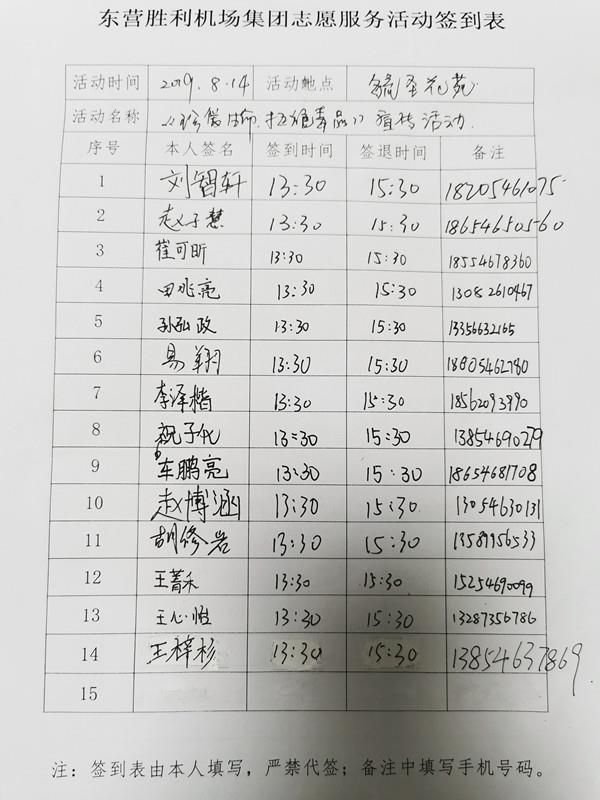 东营胜利机场集团志愿服务活动签到表
活动时间 2019.8.14 活动地点 锦圣花苑
活动名称 "珍爱生命.拒绝毒品"宣传活动
序号 本人签名 签到时间 签退时间 备注
1 刘智轩 13:30 15:30 18205461075
2 赵子慧 13:30 15:30 18654650560
3 崔可昕 13:30 15:30 18554678360
4 田兆亮 13:30 15:30 13082610467
5 孙弘政 13:30 15:30 13356632165
6 易翔 13:30 15:30 18805462780
7 李泽楷 13:30 15:30 18562093990
8 祝子化 13:30 15:30 13854690279
9 车鹏亮 13:30 15:30 18654687708
10 赵博涵 13:30 15:30 13054630131
11 胡修岩 13:30 15:30 13589956533
12 王菁禾 13:30 15:30 15254690099
13 王心怡 13:30 15:30 13287356786
14 王梓杉 13:30 15:30 13854637869
15
注：签到表由本人填写，严禁代签；备注中填写手机号码。